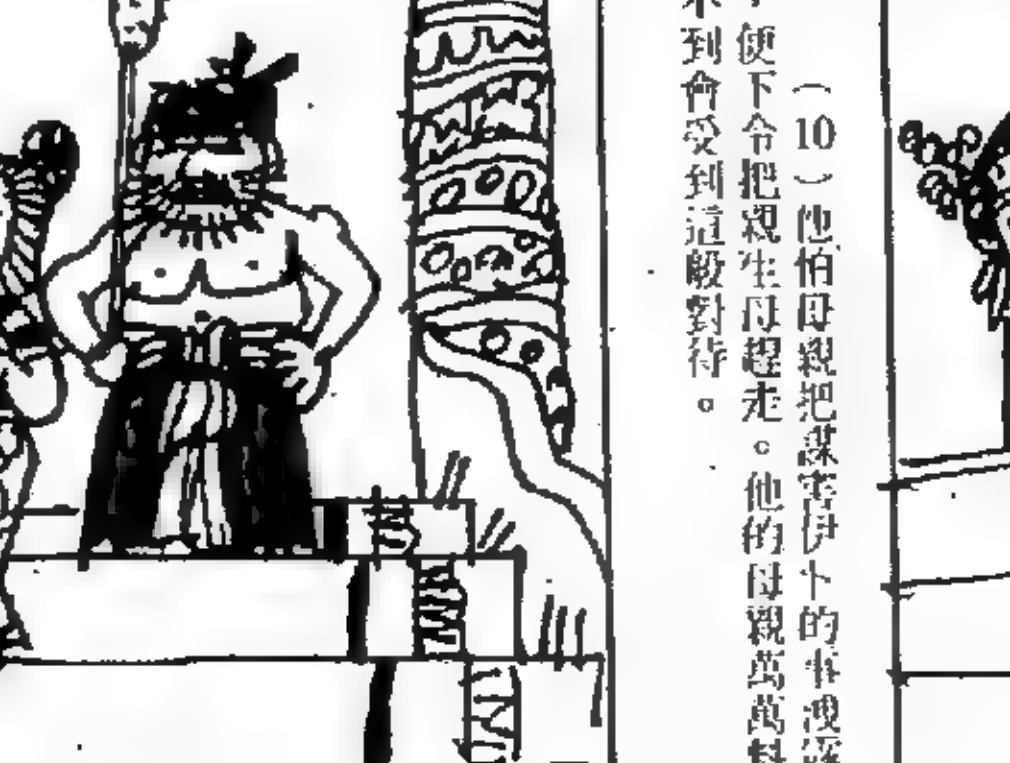 （10）他怕母親把謀害伊卜的事洩露
，便下令把親生母趕走。他的母親萬萬料
不到會受到這般對待。